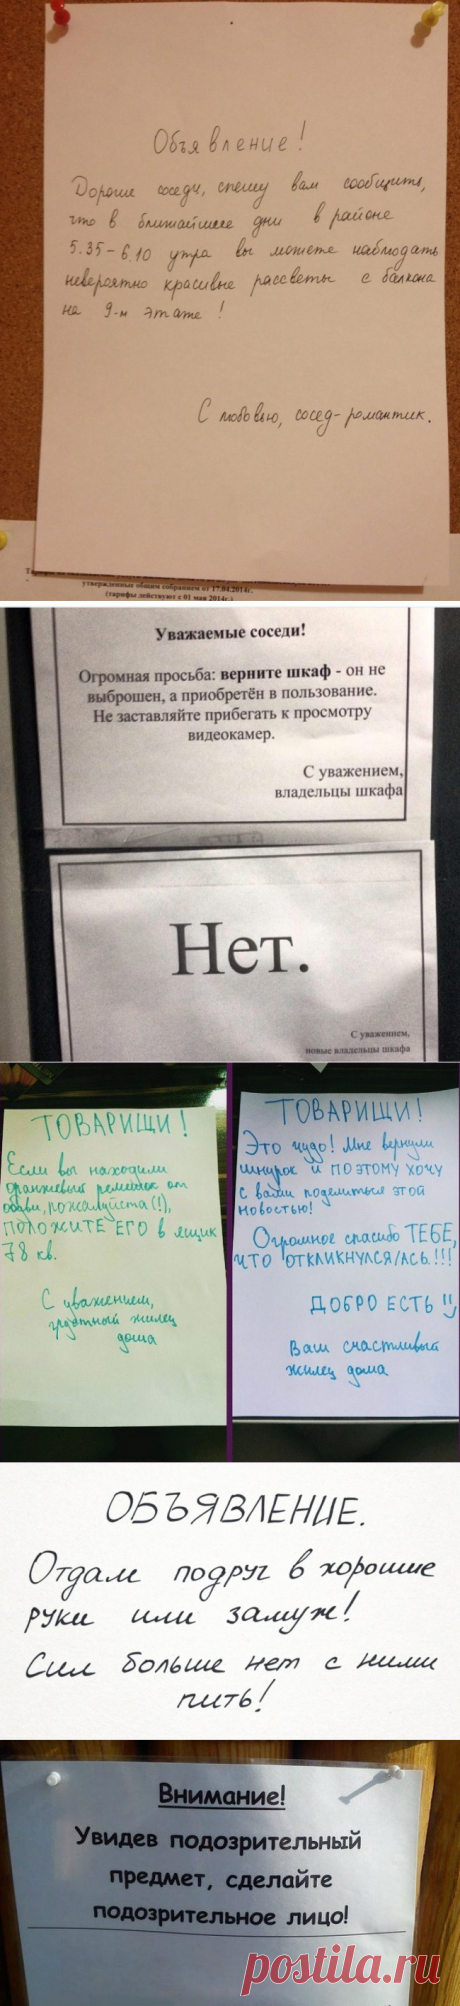 Объявление!
Дорогие соседи, спешу вам сообщить,
что в ближайшие дни в районе
5.35-6.10 утра вы можете наблюдать
невероятно красивые рассветы с балкона
на 9-м этаже!
С любовью, сосед-романтик.
утвержденные общим собранием от 17.04.2014г.
(тарифы действуют с 01 мая 2014г.)
Уважаемые соседи!
Огромная просьба: верните шкаф - он не
выброшен, а приобретён в пользование.
Не заставляйте прибегать к просмотру
видеокамер.
С уважением,
владельцы шкафа
Нет.
С уважением,
новые владельцы шкафа
ТОВАРИЩИ!
Если вы находили
оранжевый ремешок от
обуви, пожалуйста(!),
ПОЛОЖИТЕ ЕГО в ящик
78 кв.
С уважением,
грустный жилец
дома
ТОВАРИЩИ!
Это чудо! Мне вернули
шнурок и ПОЭТОМУ ХОЧУ
с вами поделиться этой
новостью!
Огромное спасибо ТЕБЕ,
ЧТО ОТКЛИКНУЛСЯ/АСЬ.!!!
ДОБРО ЕСТЬ!!
Ваш счастливый
жилец дома
ОБЪЯВЛЕНИЕ.
Отдам подруг в хорошие
руки или замуж!
Сил больше нет с ними
пить!
Внимание!
Увидев подозрительный
предмет, сделайте
подозрительное лицо!
postila.ru